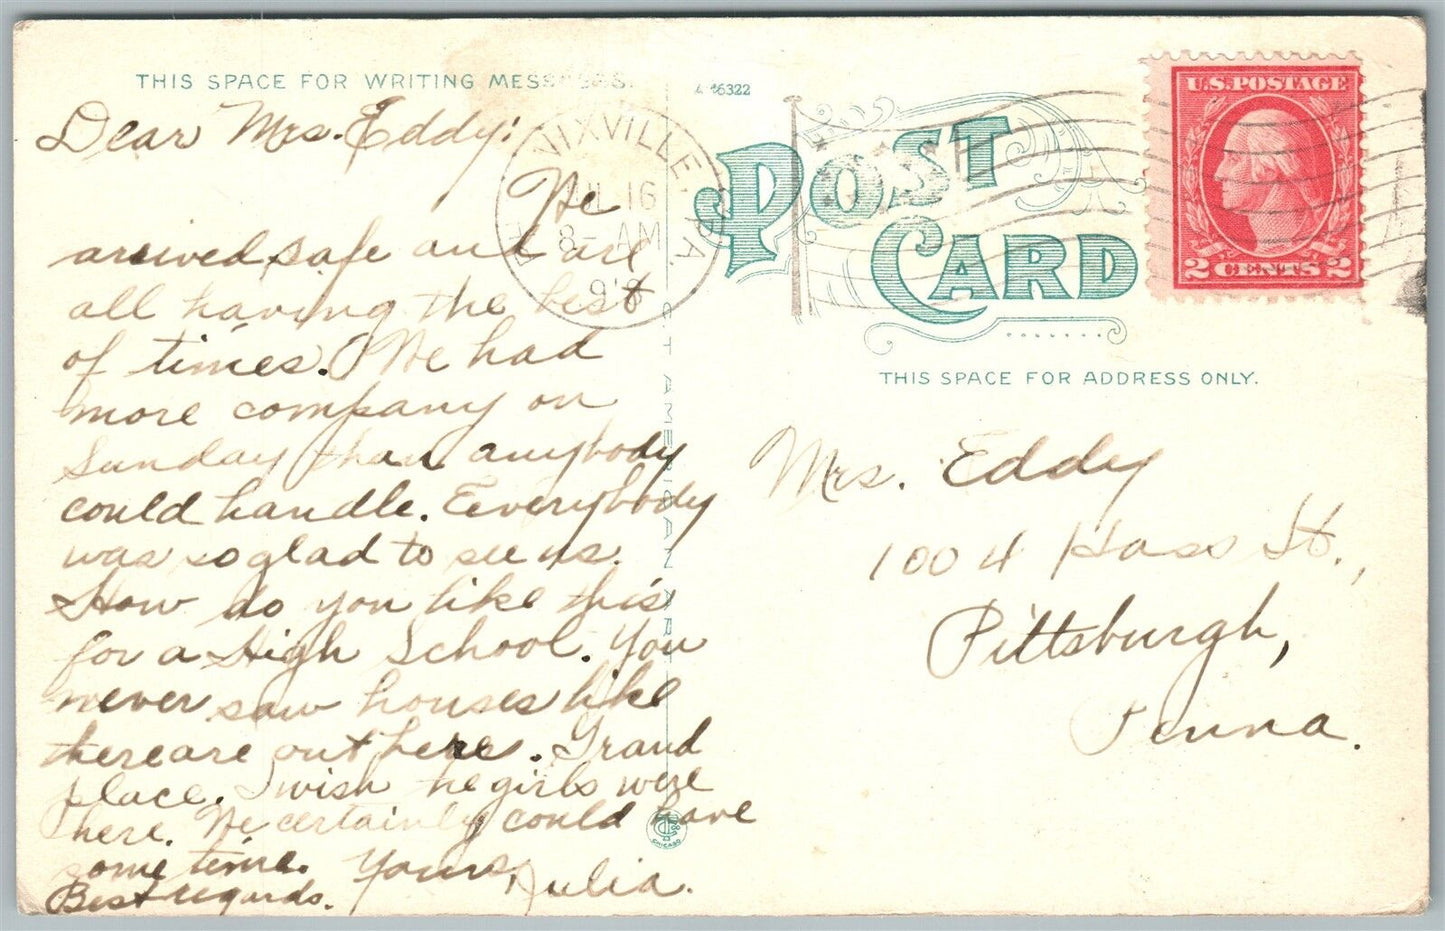 THIS SPACE FOR WRITING MESSAGES.
Dear Mrs. Eddy:
We
arrived safe and are
all having the best
of times. We had
more company on
Sunday than anybody
could handle. Everybody
was so glad to see us.
How do you like this
for a High School. You
never saw houses like
there are out here. Grand
place. I wish the girls were
here. We certainly could have
some time. Yours, Julia.
Best regards.
A 46322
POST
CARD
THIS SPACE FOR ADDRESS ONLY.
Mrs. Eddy
1004 Hass St.,
Pittsburgh,
Penna.
U.S. POSTAGE
2 CENTS 2
NIXVILLE, PA.
JUL 16
8- AM
C T AMERICAN ART
CHICAGO